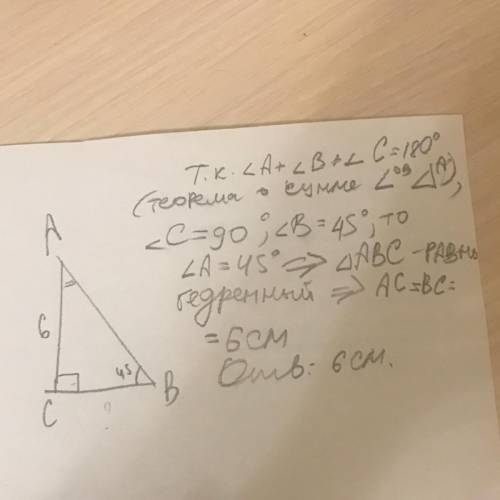 Т.к. ∠A + ∠B + ∠C = 180°
(теорема о сумме ∠ов Δ),
∠C = 90°; ∠B = 45°, то
∠A = 45° ⇒ ΔABC - РАВНО
бедренный ⇒ AC = BC =
= 6 см
Отв: 6 см.
A
6
45
C
B
?